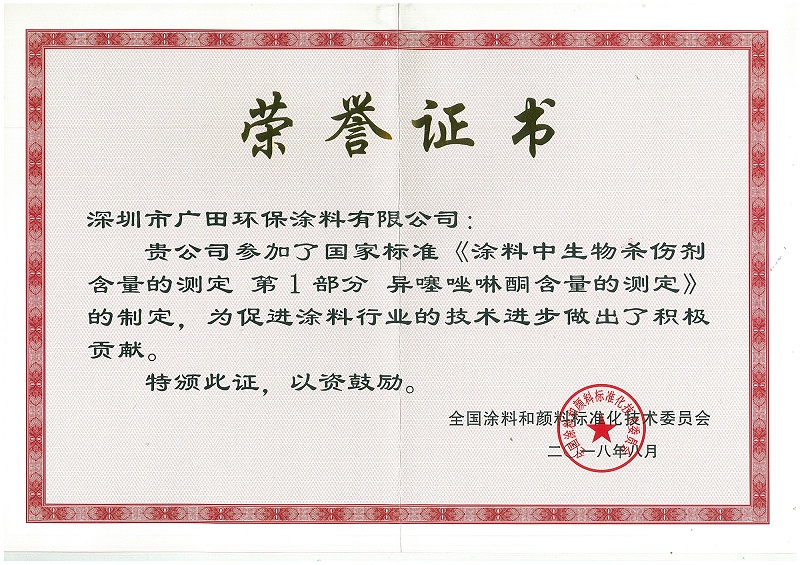 荣誉证书
深圳市广田环保涂料有限公司：
贵公司参加了国家标准《涂料中生物杀伤剂
含量的测定 第1部分 异噻唑啉酮含量的测定》
的制定，为促进涂料行业的技术进步做出了积极
贡献。
特颁此证，以资鼓励。
全国涂料和颜料标准化技术委员会
二〇一八年八月
全国涂料和颜料标准化技术委员会